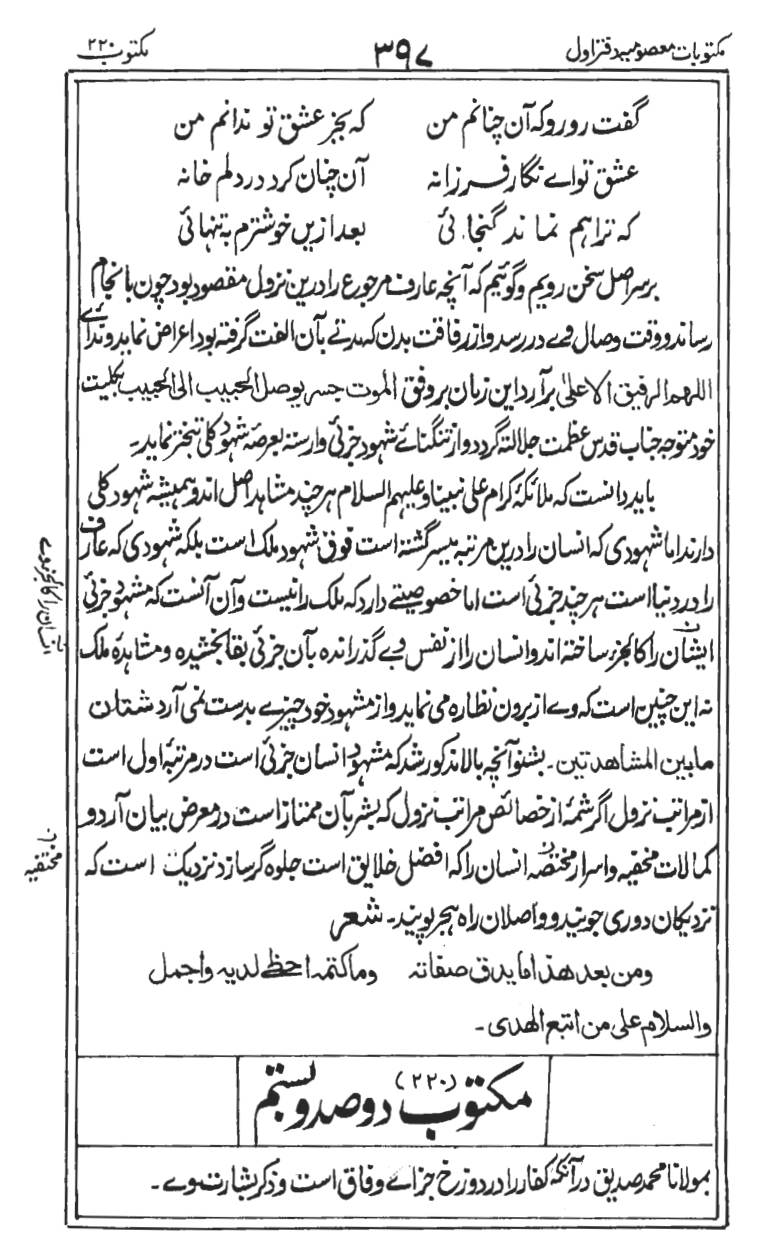 مکتوبات معصومیہ دفتر اول ۳۹۷ مکتوب ۲۲۰
گفت رو رو کہ آن چنانم من کہ بجز عشق تو ندانم من
عشق تو اے نگار فرزانہ آن چنان کرد در دلم خانہ
کہ ترا ہم نماند گنجائی بعد ازیں خوشترم بہ تنہائی
بر سر اصل سخن رویم و گوئیم کہ آنچہ عارف مرجوع را درین نزول مقصود بود چون بانجام
رساند و وقت وصال وے در رسد و از رفاقت بدن کہ مدتے بآن الفت گرفتہ بود اعراض نماید و ندائے
اللهم الرفیق الاعلیٰ بر آرد این زبان بر وفق الموت جسر یوصل الحبیب الی الحبیب بکلیت
خود متوجہ جناب قدس عظمت جلالتہ گردد و از تنگنائے شہود جزئی وارستہ بعرصۂ شہود کلی تبختر نماید۔
باید دانست کہ ملائکۂ کرام علی نبینا و علیہم السلام ہر چند مشاہد اصل اند و ہمیشہ شہود کلی
دارند اما شہودی کہ انسان را درین مرتبہ میسر گشتہ است فوق شہود ملک است بلکہ شہودی کہ عارف
را در دنیا است ہر چند جزئی است اما خصوصیتے دارد کہ ملک را نیست و آن آنست کہ مشہود جزئی
ایشان را کالجزء ساختہ اند و انسان را از نفس وے گذراندہ بآن جزئی بقا بخشیدہ و مشاہدۂ ملک
انسان را کالجزو وے
نہ این چنین است کہ وے از برون نظارہ می نماید و از مشہود خود چیزے بدست نمی آرد شتان
مابین المشاهدتین۔ بشنو آنچہ بالا مذکور شد کہ مشہود انسان جزئی است در مرتبۂ اول است
از مراتب نزول اگر شمۂ از خصائص مراتب نزول کہ بشر بآن ممتاز است در معرض بیان آرد و
کمالات مخفیہ و اسرار مختصہ انسان را کہ افضل خلایق است جلوہ گر سازد نزدیک است کہ
مختفیہ
نزدیکان دوری جویند و واصلان راہ ہجر پویند۔ شعر
ومن بعد هذا ما یدق صفاته وما کتمه احظے لدیه واجمل
والسلام علی من اتبع الهدی۔
مکتوب (۲۲۰) دو صد و بستم
بمولانا محمد صدیق در آنکہ کفار را در دوزخ جزاے وفاق است و ذکر بشارت وے۔